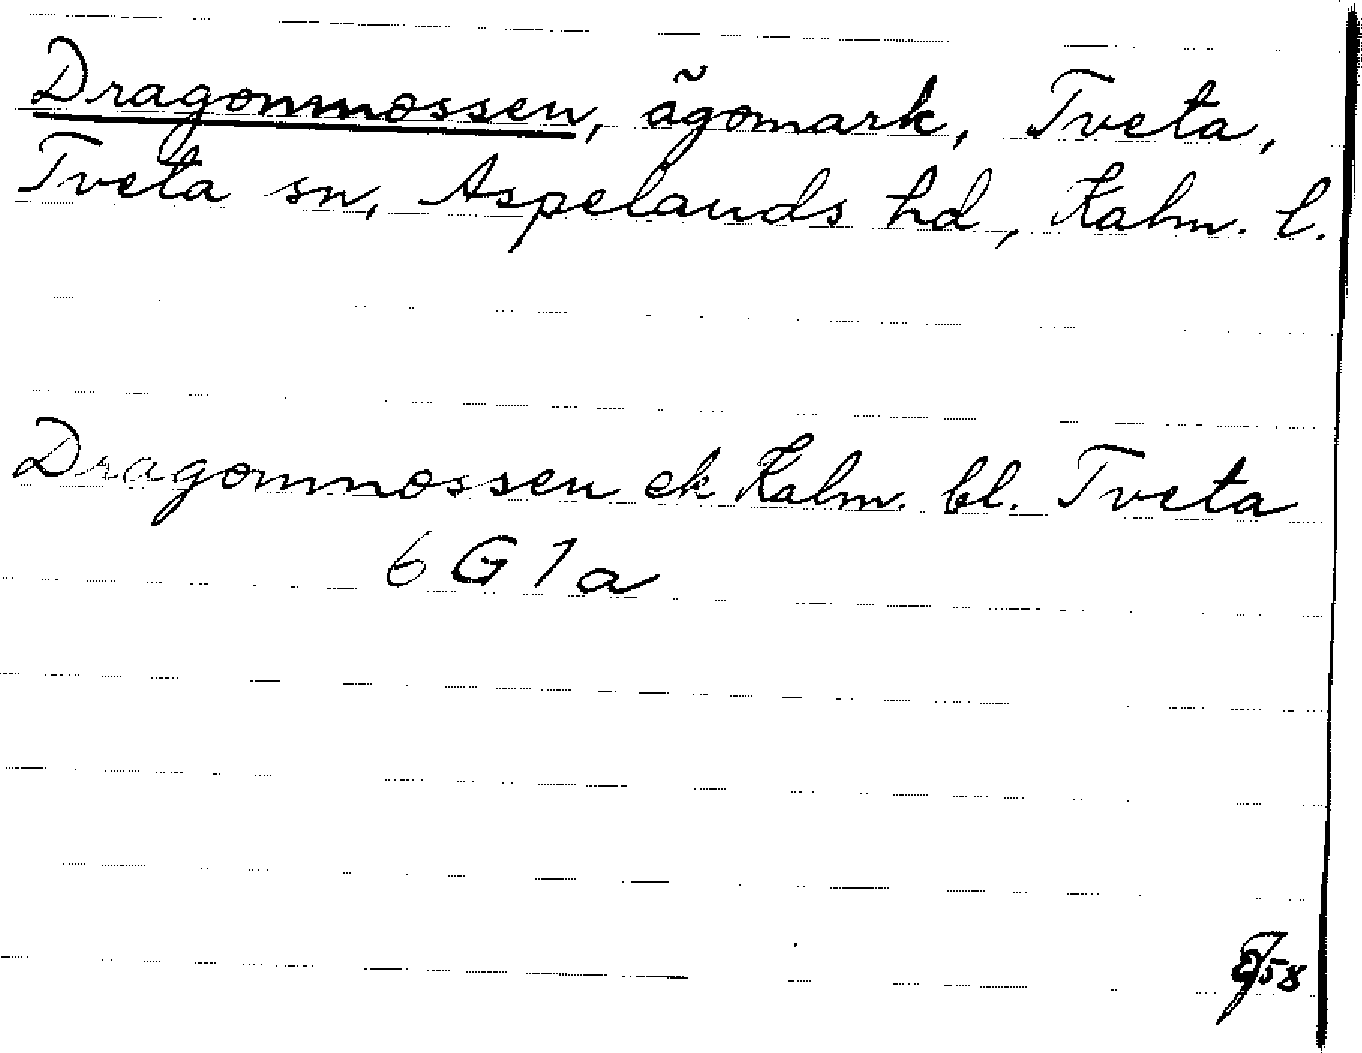 Dragonmossen, ägomark, Tveta,
Tveta sn, Aspelands hd, Kalm. l.
Dragonmossen ek Kalm. bl. Tveta
6 G 1 a